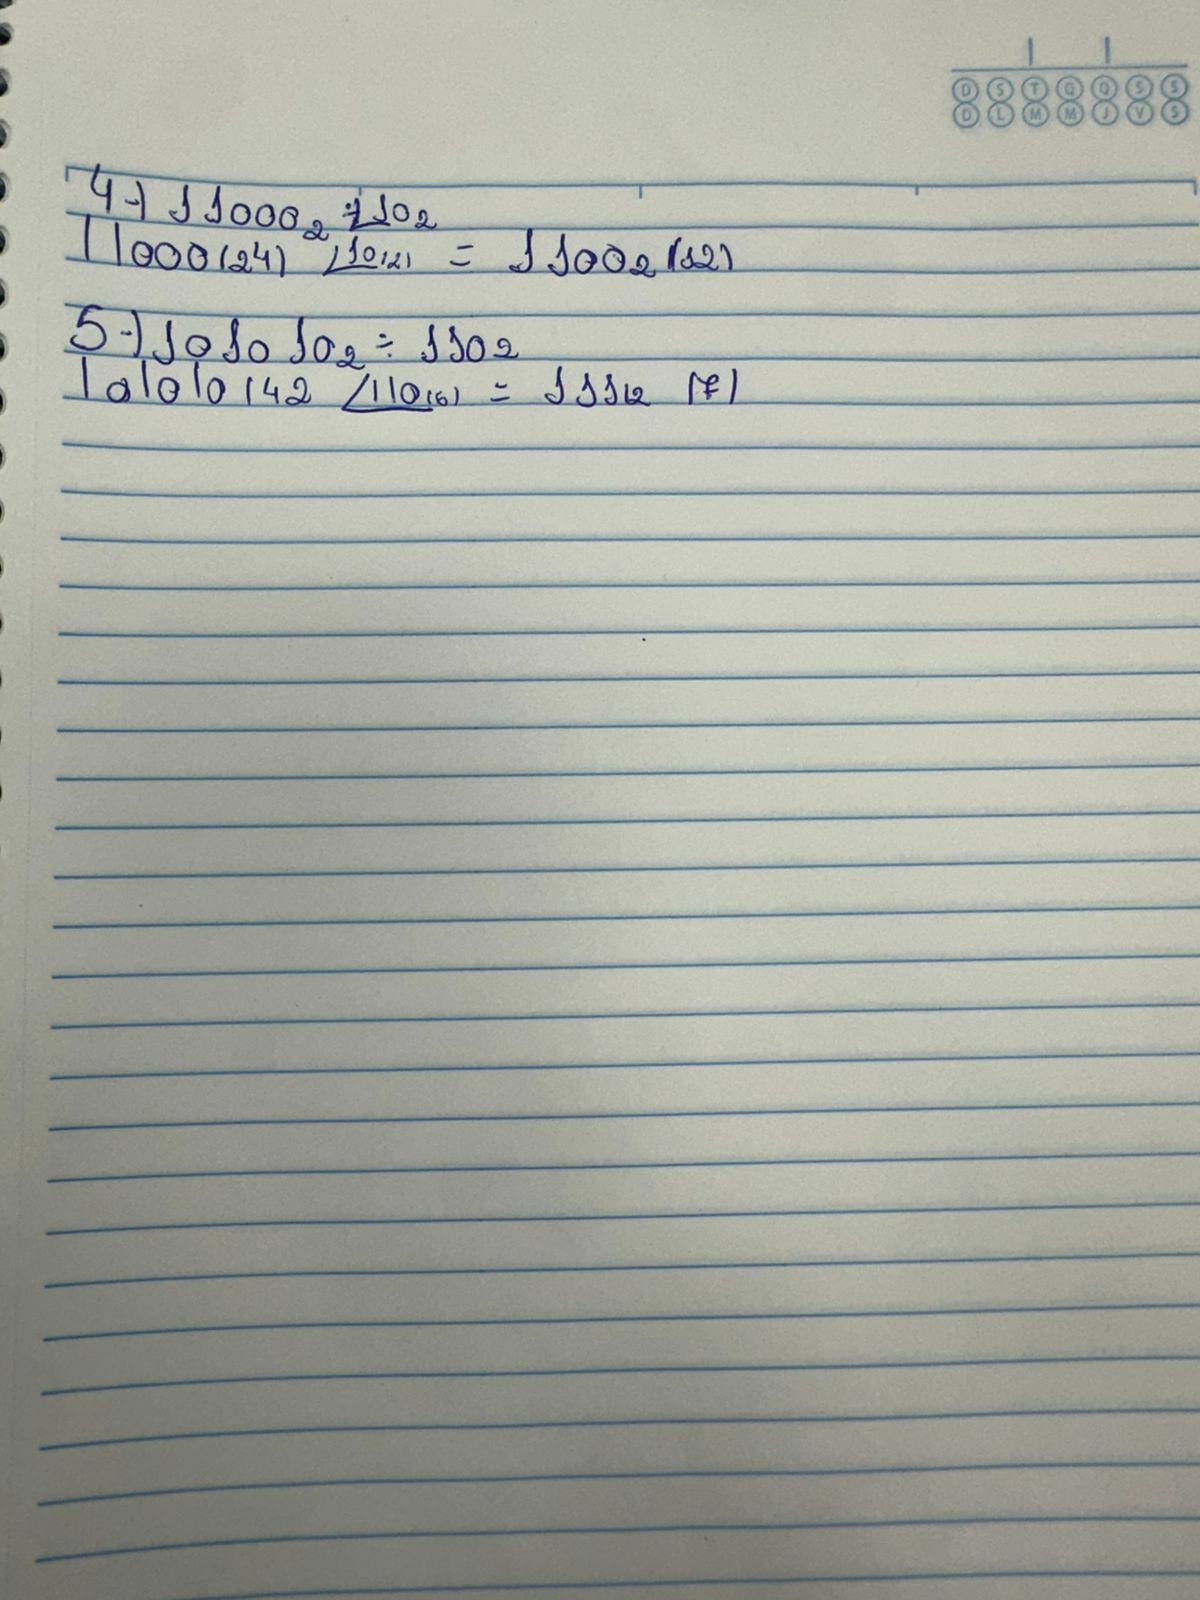 D S T Q Q S S
D L M M J V S
4-) 11000₂ ÷ 10₂
11000(24) /10(2) = 1100₂ (12)
5-) 101010₂ ÷ 110₂
101010(42 /110(6) = 111₂ (7)